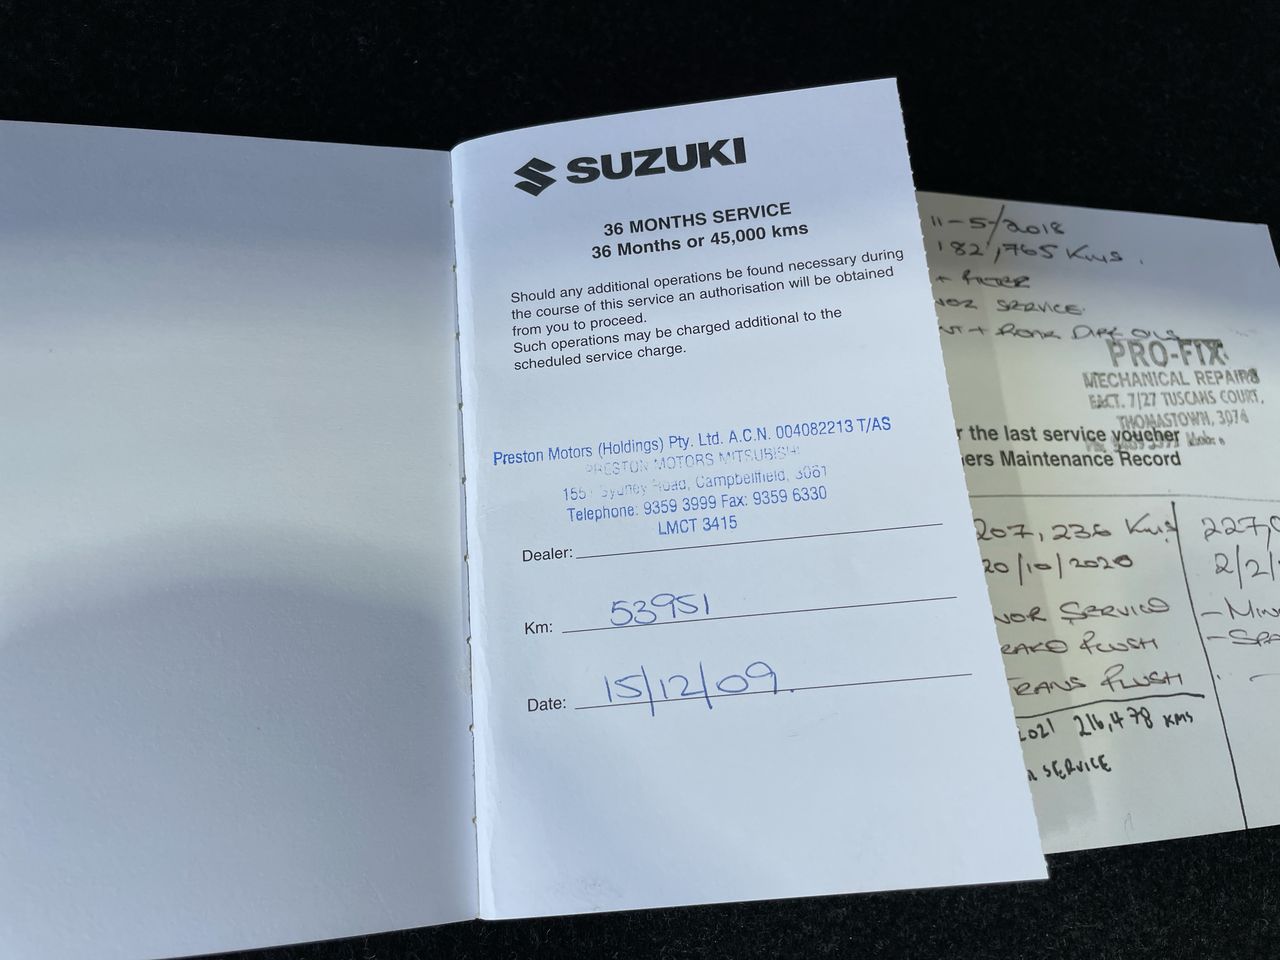 SUZUKI
36 MONTHS SERVICE
36 Months or 45,000 kms
Should any additional operations be found necessary during
the course of this service an authorisation will be obtained
from you to proceed.
Such operations may be charged additional to the
scheduled service charge.
Preston Motors (Holdings) Pty. Ltd. A.C.N. 004082213 T/AS
PRESTON MOTORS MITSUBISHI
Sydney Road, Campbellfield, 3061
Telephone: 9359 3999 Fax: 9359 6330
LMCT 3415
Dealer:
Km: 53951
Date: 15/12/09.
11-5/2018
182,765 Kms.
+ FILTER
NOR SERVICE
NT + REAR DIFF OILS
PRO-FIX
MECHANICAL REPAIRS
FACT. 7/27 TUSCANS COURT,
THOMASTOWN, 3074
r the last service voucher
ers Maintenance Record
207,236 Kms
20/10/2020
NOR SERVICE
RAKE FLUSH
TRANS FLUSH
2021 216,478 KMS
SERVICE
227,0
2/2/
- MIN
- SPA